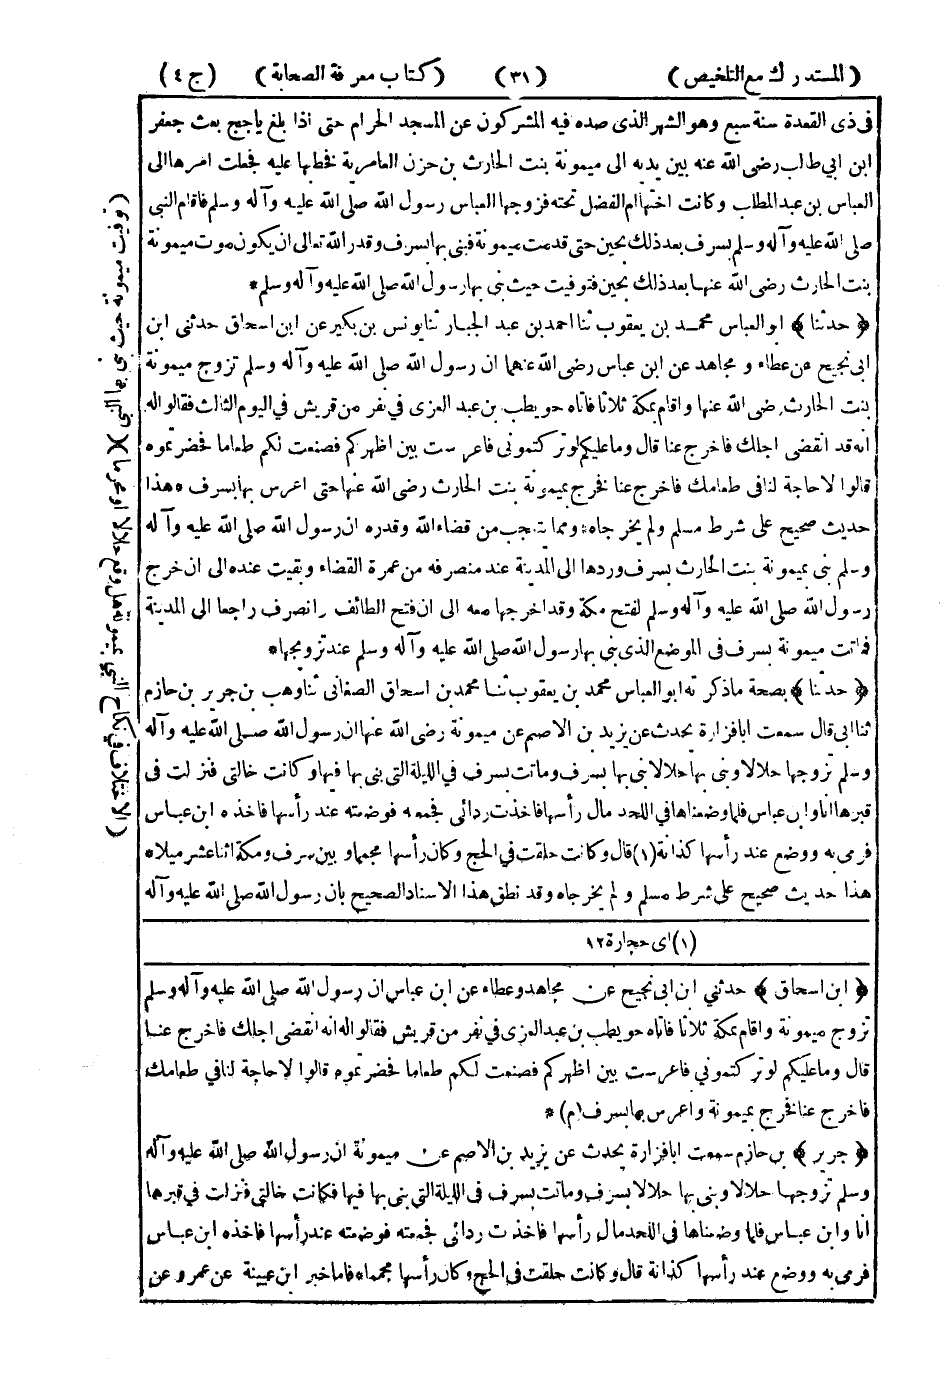 (المستدرك مع التلخيص) (٣١) (كتاب معرفة الصحابة) (ج ٤)
فى ذى القعدة سنة سبع وهو الشهر الذى صده فيه المشركون عن المسجد الحرام حتى اذا بلغ ياجج بعث جعفر
ابن ابي طالب رضى الله عنه بين يديه الى ميمونة بنت الحارث بن حزن العامرية فخطبها عليه فجعلت امرها الى
العباس بن عبد المطلب وكانت اختها ام الفضل تحته فزوجها العباس رسول الله صلى الله عليه وآله وسلم فاقام النبي
صلى الله عليه وآله وسلم بسرف بعد ذلك بحين حتى قدمت ميمونة فبنى بها بسرف وقدر الله تعالى ان يكون موت ميمونة
بنت الحارث رضى الله عنها بعد ذلك بحين فتوفيت حيث بنى بها رسول الله صلى الله عليه وآله وسلم*
﴿حدثنا﴾ ابو العباس محمد بن يعقوب ثنا احمد بن عبد الجبار ثنا يونس بن بكير عن ابن اسحاق حدثنى ابن
ابى نجيح عن عطاء و مجاهد عن ابن عباس رضى الله عنهما ان رسول الله صلى الله عليه وآله وسلم تزوج ميمونة
بنت الحارث رضى الله عنها واقام بمكة ثلاثا فاتاه حويطب بن عبد العزى في نفر من قريش في اليوم الثالث فقالوا له
انه قد انقضى اجلك فاخرج عنا قال وما عليكم لو تركتمونى فاعرست بين اظهركم فصنعت لكم طعاما فحضرتموه
قالوا لا حاجة لنا فى طعامك فاخرج عنا فخرج بميمونة بنت الحارث رضى الله عنها حتى اعرس بها بسرف * هذا
حديث صحيح على شرط مسلم ولم يخرجاه* ومما يتعجب من قضاء الله وقدره ان رسول الله صلى الله عليه وآله
وسلم بنى بميمونة بنت الحارث بسرف وردها الى المدينة عند منصرفه من عمرة القضاء وبقيت عنده الى ان خرج
رسول الله صلى الله عليه وآله وسلم لفتح مكة وقد اخرجها معه الى ان فتح الطائف وانصرف راجعا الى المدينة
فماتت ميمونة بسرف فى الموضع الذى بنى بها رسول الله صلى الله عليه وآله وسلم عند تزويجها*
﴿حدثنا﴾ بصحة ما ذكرته ابو العباس محمد بن يعقوب ثنا محمد بن اسحاق الصغانى ثنا وهب بن جرير بن حازم
ثنا ابى قال سمعت ابا فزارة يحدث عن يزيد بن الاصم عن ميمونة رضى الله عنها ان رسول الله صلى الله عليه وآله
وسلم تزوجها حلالا وبنى بها حلالا بنى بها بسرف وماتت بسرف في الليلة التي بنى بها فيها وكانت خالتى فنزلت فى
قبرها انا وابن عباس فلما وضعناها في اللحد مال رأسها فاخذت ردائى فجمعه فوضعته عند رأسها فاخذه ابن عباس
فرمى به ووضع عند رأسها كذانة (١) قال وكانت حلقت في الحج وكان رأسها مجمما و بين سرف ومكة اثنا عشر ميلا*
هذا حديث صحيح على شرط مسلم ولم يخرجاه وقد نطق هذا الاسناد الصحيح بان رسول الله صلى الله عليه وآله
(١) اى حجارة ١٢
﴿ابن اسحاق﴾ حدثني ابن ابى نجيح عن مجاهد وعطاء عن ابن عباس ان رسول الله صلى الله عليه وآله وسلم
تزوج ميمونة واقام بمكة ثلاثا فاتاه حويطب بن عبد العزى في نفر من قريش فقالوا له انه انقضى اجلك فاخرج عنا
قال وما عليكم لو تركتموني فاعرست بين اظهركم فصنعت لكم طعاما فحضرتموه قالوا لا حاجة لنا في طعامك
فاخرج عنا فخرج بميمونة واعرس بها بسرف (م) *
﴿جرير﴾ بن حازم سمعت ابا فزارة يحدث عن يزيد بن الاصم عن ميمونة ان رسول الله صلى الله عليه وآله
وسلم تزوجها حلالا وبنى بها حلالا بسرف وماتت بسرف فى الليلة التى بنى بها فيها فكانت خالتى فنزلت في قبرها
انا وابن عباس فلما وضعناها في اللحد مال رأسها فاخذت ردائى فجمعته فوضعته عند رأسها فاخذه ابن عباس
فرمى به ووضع عند رأسها كذانة قال وكانت حلقت فى الحج وكان رأسها مجمما * فاما خبر ابن عيينة عن عمرو عن
(توفيت ميمونة حيث بنى بها النبي)
(الاختلاف في نكاح النبي بميمونة هل وقع حلالا او محرما)